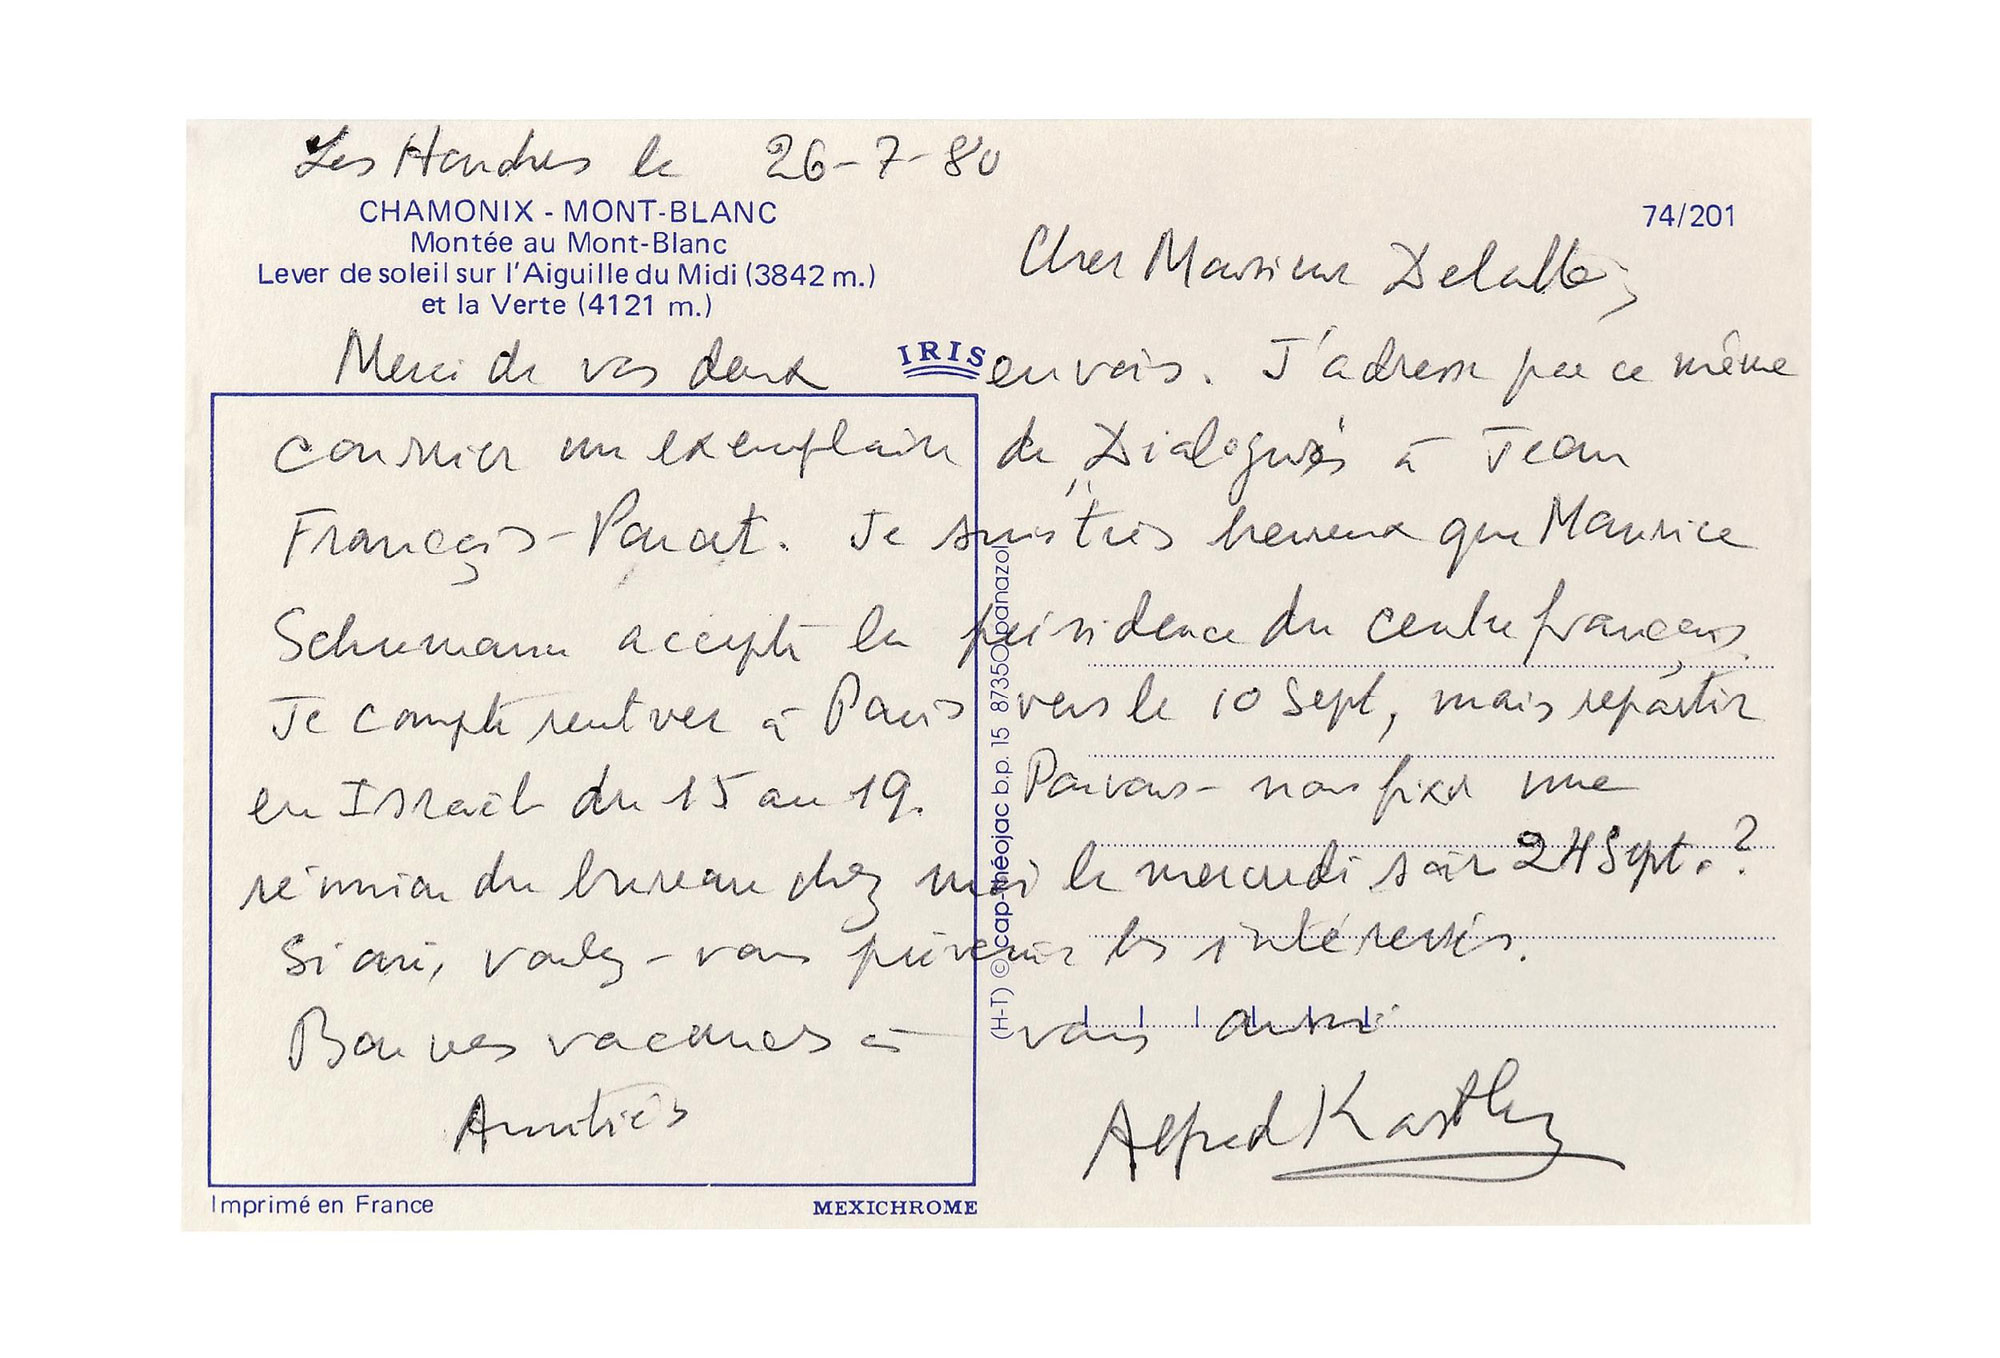 Les Houches le 26-7-80
CHAMONIX - MONT-BLANC
Montée au Mont-Blanc
Lever de soleil sur l'Aiguille du Midi (3842 m.)
et la Verte (4121 m.)
74/201
Cher Monsieur Delalbe,
IRIS
Merci de vos deux envois. J'adresse par ce même
courrier un exemplaire de "Dialogues à Jean
François-Poncet. Je suis très heureux que Maurice
Schumann accepte la présidence du centre français.
Je compte rentrer à Paris vers le 10 Sept, mais repartir
en Israël du 15 au 19. Pouvons-nous fixer une
réunion du bureau chez moi le mercredi soir 24 Sept.?
Si oui, voulez-vous prévenir les intéressés.
Bonnes vacances à vous aussi
Amitiés
Alfred Kastler
(H-T) © cap-théojac b.p. 15 87350 panazol
Imprimé en France
MEXICHROME